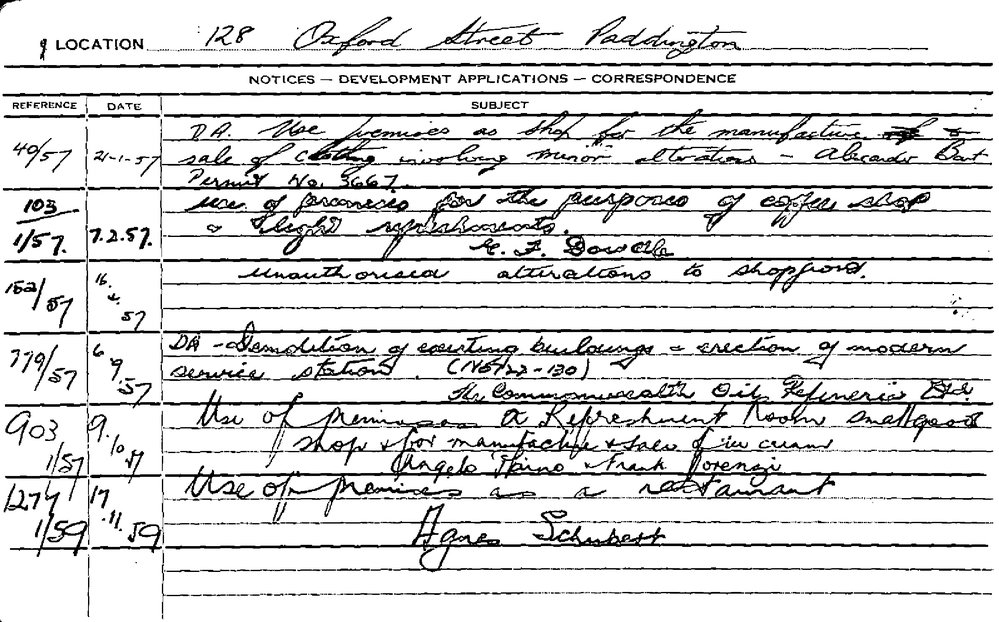 LOCATION 128 Oxford Street Paddington
NOTICES — DEVELOPMENT APPLICATIONS — CORRESPONDENCE
REFERENCE DATE SUBJECT
40/57 21-1-57 DA. Use premises as shop for the manufacture
sale of clothing involving minor alterations - Alexander
Permit No. 3667.
103 use of premises for the purposes of coffee shop
1/57. 7.2.57. & light refreshments.
E. F.
152/57 16.4.57 unauthorised alterations to shopfront.
779/57 6.9.57 DA - Demolition of existing buildings & erection of modern
service station. (
The Commonwealth Oil Refineries Ltd.
903 9. Use of premises a Refreshment Room smallgoods
1/57 10.57 shop & for manufacture & sale of ice cream
Angelo & Frank Lorenzi
1277 17 Use of premises as a restaurant
1/59 .11.59 Agnes Schubert